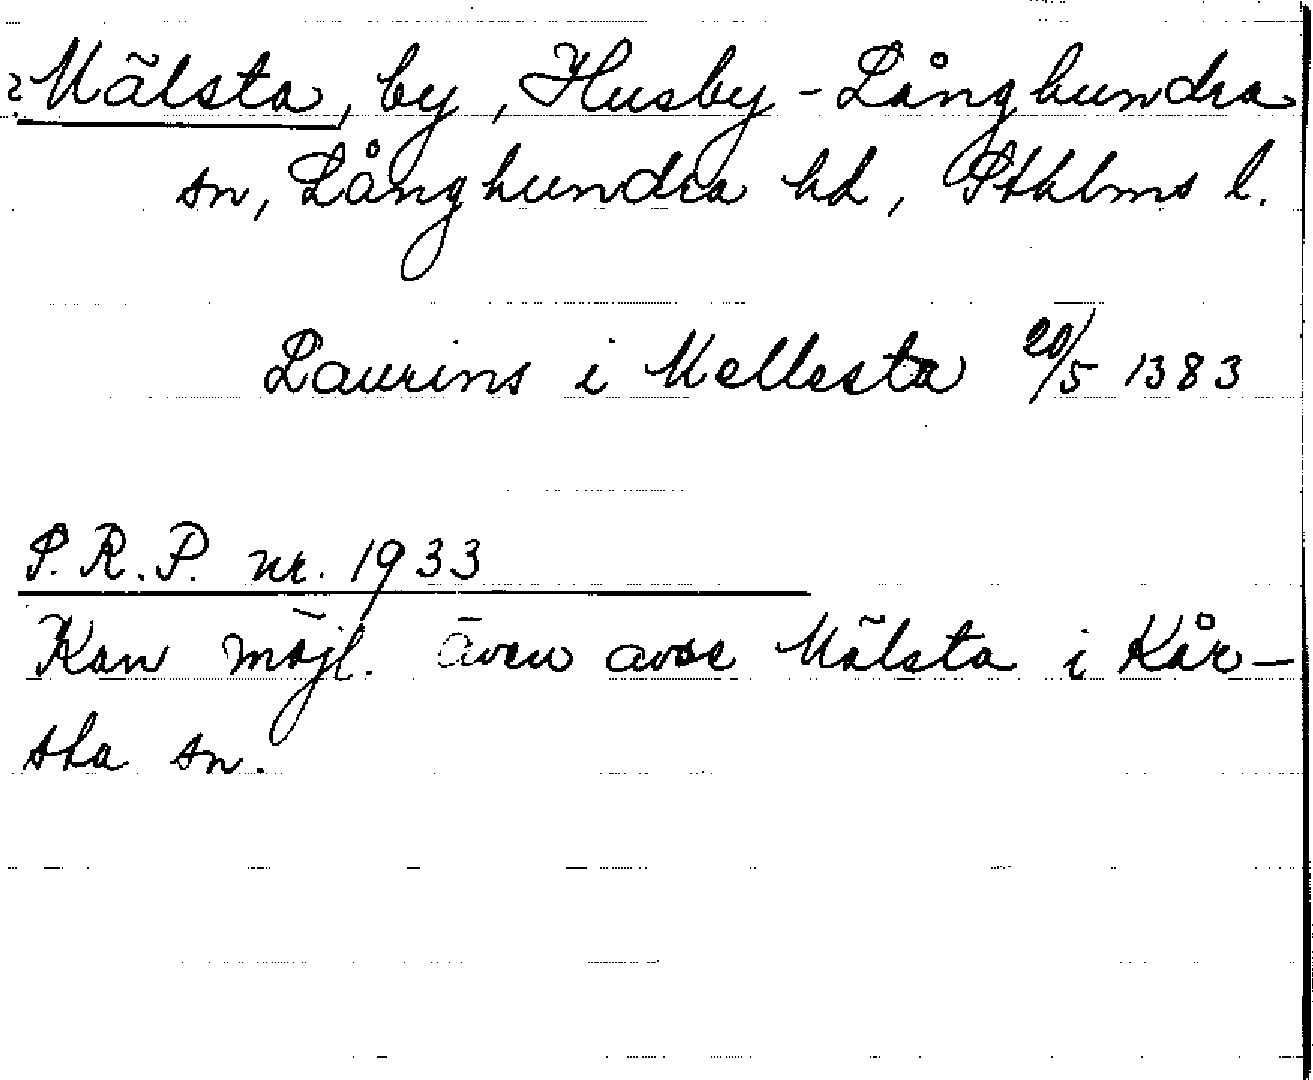 ? Mälsta, by, Husby-Långhundra
sn, Långhundra hd, Sthlms l.
Laurins i Mellesta 20/5 1383
S.R.P. nr. 1933
Kan möjl. även avse Mälsta i Kår-
sta sn.